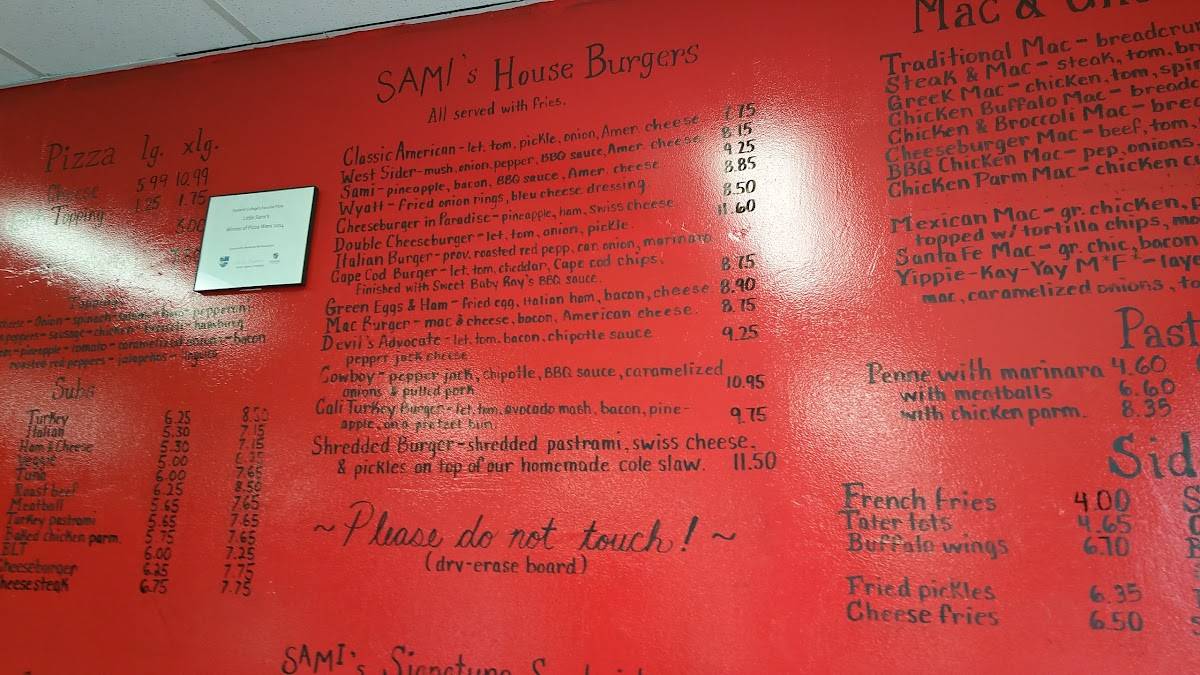 Pizza lg. xlg.
Cheese 5.99 10.99
Topping 1.25 1.75
Toppings
onion - spinach
sausage - chicken - broccoli - hamburg
pineapple - tomato - caramelized onion - bacon
roasted red peppers - jalapeños
Subs
Turkey 6.25 8.50
Italian 5.30 7.15
Ham & Cheese 5.30 7.15
Veggie 5.00
Tuna 6.00 7.65
Roast beef 6.25 8.50
Meatball 5.65 7.65
Turkey pastrami 5.65 7.65
Baked chicken parm. 5.75 7.65
BLT 6.00 7.25
Cheeseburger 6.25 7.75
Cheesesteak 6.75 7.75
SAMI's House Burgers
All served with fries.
Classic American - let, tom, pickle, onion, Amer. cheese 7.75
West Sider - mush, onion, pepper, BBQ sauce, Amer. cheese 8.15
Sami - pineapple, bacon, BBQ sauce, Amer. cheese 9.25
Wyatt - Fried onion rings, bleu cheese dressing 8.85
Cheeseburger in Paradise - pineapple, ham, Swiss cheese 8.50
Double Cheeseburger - let, tom, onion, pickle. 11.60
Italian Burger - prov, roasted red pepp, car. onion, marinara
Cape Cod Burger - let, tom, cheddar, Cape cod chips.
Finished with Sweet Baby Ray's BBQ sauce. 8.75
Green Eggs & Ham - fried egg, Italian ham, bacon, cheese 8.90
Mac Burger - mac & cheese, bacon, American cheese. 8.75
Devil's Advocate - let, tom, bacon, chipotle sauce 9.25
pepper jack cheese
Cowboy - pepper jack, chipotle, BBQ sauce, caramelized
onions & pulled pork 10.95
Cali Turkey Burger - let, tom, avocado mash, bacon, pine-
apple, on a pretzel bun 9.75
Shredded Burger - shredded pastrami, swiss cheese,
& pickles on top of our homemade cole slaw. 11.50
~ Please do not touch! ~
(dry-erase board)
SAMI's Signature
Mac &
Traditional Mac - breadcru
Steak & Mac - steak, tom, br
Greek Mac - chicken, tom, spin
Chicken Buffalo Mac - breadc
Chicken & Broccoli Mac - brea
Cheeseburger Mac - beef, tom,
BBQ Chicken Mac - pep, onions,
Chicken Parm Mac - chicken c
Mexican Mac - gr. chicken, p
topped w/ tortilla chips, ma
Santa Fe Mac - gr. chic, bacon
Yippie-Kay-Yay M*F² - laye
mac, caramelized onions, to
Past
Penne with marinara 4.60
with meatballs 6.60
with chicken parm. 8.35
Sid
French fries 4.00
Tater tots 4.65
Buffalo wings 6.70
Fried pickles 6.35
Cheese fries 6.50